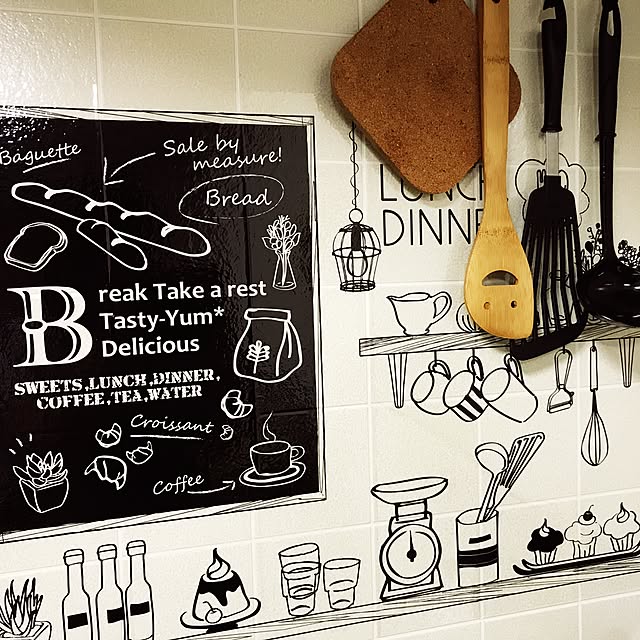 Baguette
Sale by
measure!
Bread
Break Take a rest
Tasty-Yum*
Delicious
SWEETS,LUNCH,DINNER,
COFFEE,TEA,WATER
Croissant
Coffee
LUNCH
DINNER